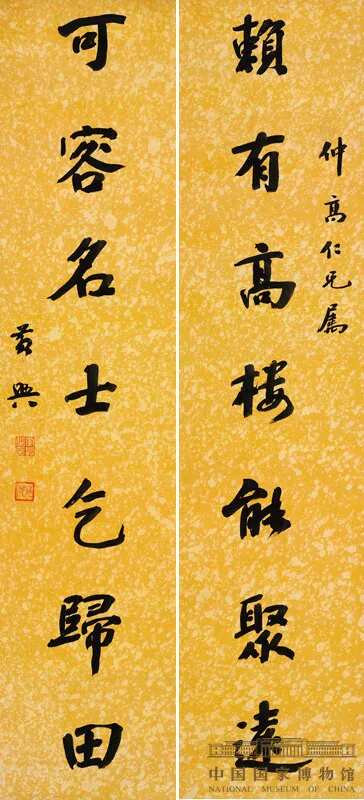 仲高仁兄属
賴有高樓能聚遠
可容名士乞歸田
黄興
中国国家博物馆
NATIONAL MUSEUM OF CHINA